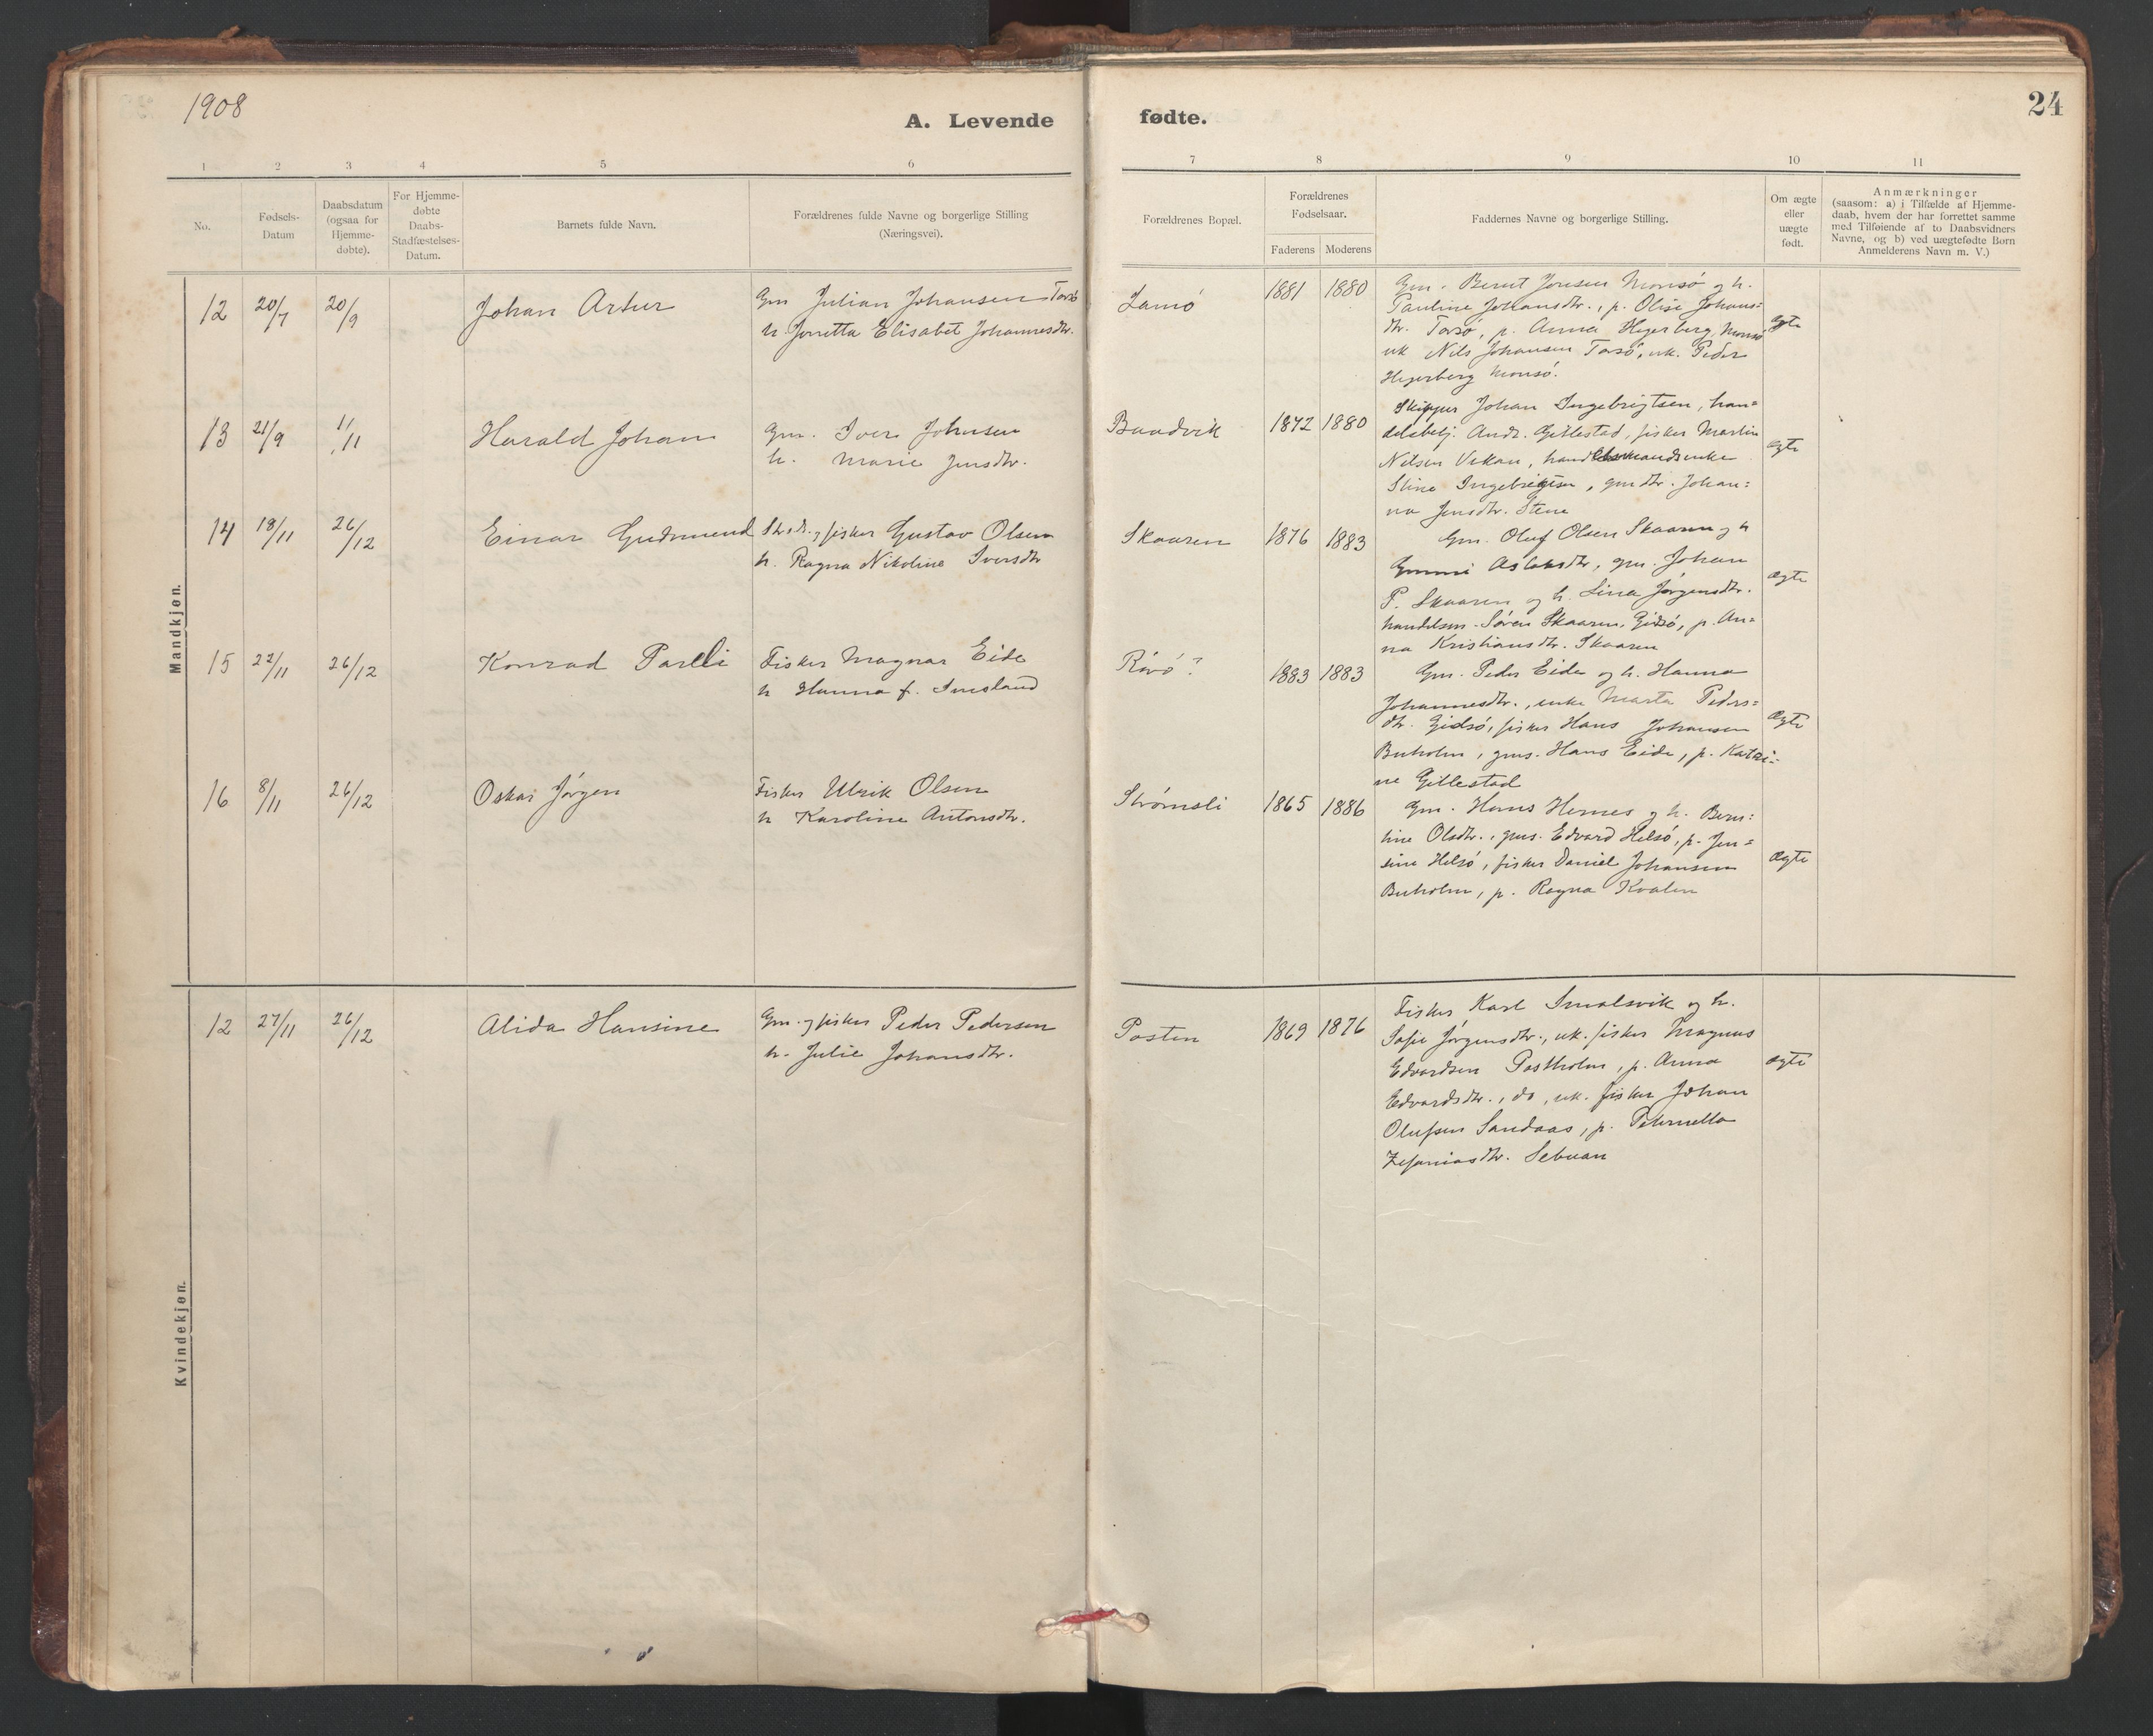 1908
A. Levende fødte.
24
1 2 3 4 5 6 7 8 9 10 11
No.
Fødsels-
Datum
Daabsdatum
(ogsaa for
Hjemme-
døbte).
For Hjemme-
døbte
Daabs-
Stadfæstelses-
Datum.
Barnets fulde Navn.
Forældrenes fulde Navne og borgerlige Stilling
(Næringsvei).
Forældrenes Bopæl.
Forældrenes
Fødselsaar.
Faderens Moderens
Faddernes Navne og borgerlige Stilling.
Om ægte
eller
uægte
født.
Anmærkninger
(saasom: a) i Tilfælde af Hjemme-
daab, hvem der har forrettet samme
med Tilføiende af to Daabsvidners
Navne, og b) ved uægtefødte Børn
Anmelderens Navn m. V.)
Mandkjøn.
12 20/7 20/9 Johan Artur
Gm Julian Johansen Torsø
h. Jorretta Elisabet Johannesdtr.
Lamø 1881 1880
Gm. Bernt Jonsen Monsø og h.
Pauline Johansdtr., p. Olise Johans=
dtr. Torsø, p. Anna Hegerberg Monsø
uk Nils Johansen Torsø, uk. Peder
Hegerberg Monsø.
ægte
13 21/9 1/11 Harald Johan
Gm. Iver Johnsen
h. Marie Jensdtr.
Baadvik 1872 1880
Skipper Johan Ingebrigtsen, han=
delsbetj. Andr. Gillestad, fisker Martin
Nilsen Vikan, handelsmandsenke
Stine Ingebrigtsen, gmdtr. Johan=
na Jensdtr. Stene
ægte
14 18/11 26/12 Einar Gudmund
Strds. og fisker Gustav Olsen
h. Ragna Nikoline Iversdtr
Skaaren 1876 1883
Gm. Oluf Olsen Skaaren og h
Gunni Aslaksdtr, gm. Johan
P. Skaaren og h. Lina Jørgensdtr.
handelsm. Søren Skaaren, Gidsø, p. An=
na Kristiansdtr. Skaaren
ægte
15 22/11 26/12 Konrad Parelli
Fisker Magnar Eide
h Hanna f. Imsland
Rövö? 1883 1883
Gm. Peder Eide og h. Hanna
Johannesdtr., enke Marta Peders=
dtr. Gidsø, fisker Hans Johansen
Buholm, gms. Hans Eide, p. Katri=
ne Gillestad
ægte
16 8/11 26/12 Oskar Jørgen
Fisker Ulrik Olsen
h Karoline Antonsdtr.
Strømsli 1865 1886
Gm. Hans Hernes og h. Bern=
tine Olsdtr., gms. Edvard Helsø, p. Jen=
sine Helsø, fisker Daniel Johansen
Buholm, p. Ragna Kvalen
ægte
Kvindekjøn.
12 27/11 26/12 Alida Hansine
Gm. og fisker Peder Pedersen
h. Julie Johansdtr.
Posten 1869 1876
Fisker Karl Smalsvik og h.
Sofie Jørgensdtr., uk. fisker Magnus
Edvardsen Postholm, p. Anna
Edvardsdtr., do, uk. fisker Johan
Olufsen Sandaas, p. Peternella
Zefaniasdtr. Sebuan
ægte